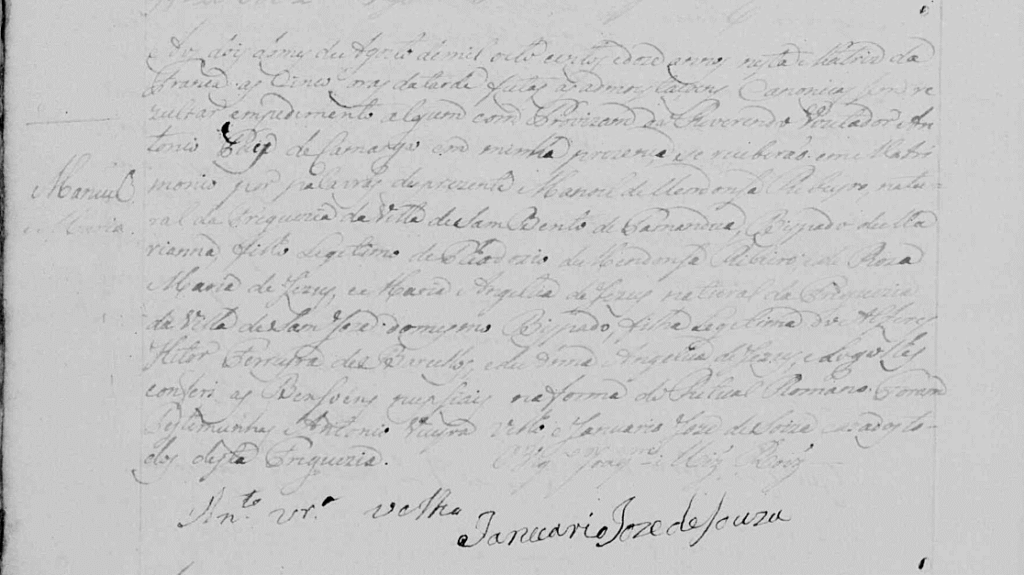 Aos dois dias do mes de Agosto de mil oito centos e doze annos nesta Matriz da
Franca as Cinco oras da tarde feitas as admoestaçoens Canonicas sem re
zultar empedimento algum com Provizam do Reverendo Vizitador An
tonio Paiz de Camargo em minha prezença se receberão em Matri
Manuel
monio por palavras de prezente Manoel de Mendonsa Ribeyro, natu-
e Maria
ral da Freguezia da Villa de Sam Bento de Tamandua, Bispado de Ma
rianna, filho Legitimo de Theodozio de Mendonsa Ribeiro, e de Roza
Maria de Jezus, e Maria Angelica de Jezus natural da Freguezia
da Villa de Sam Jozé do mesmo Bispado, filha Legitima do Alferes
Hitor Ferreira de Barcellos, e de Anna Angelica de Jezus, e Logo lhes
conferi as Bensoens nupsiais na forma do Ritual Romano. Foram
Testemunhas Antonio Vieyra Velho e Januario Jozé de Soiza cazados to-
dos desta Freguezia.
Antº Vrª Velho
Januario Joze de Souza